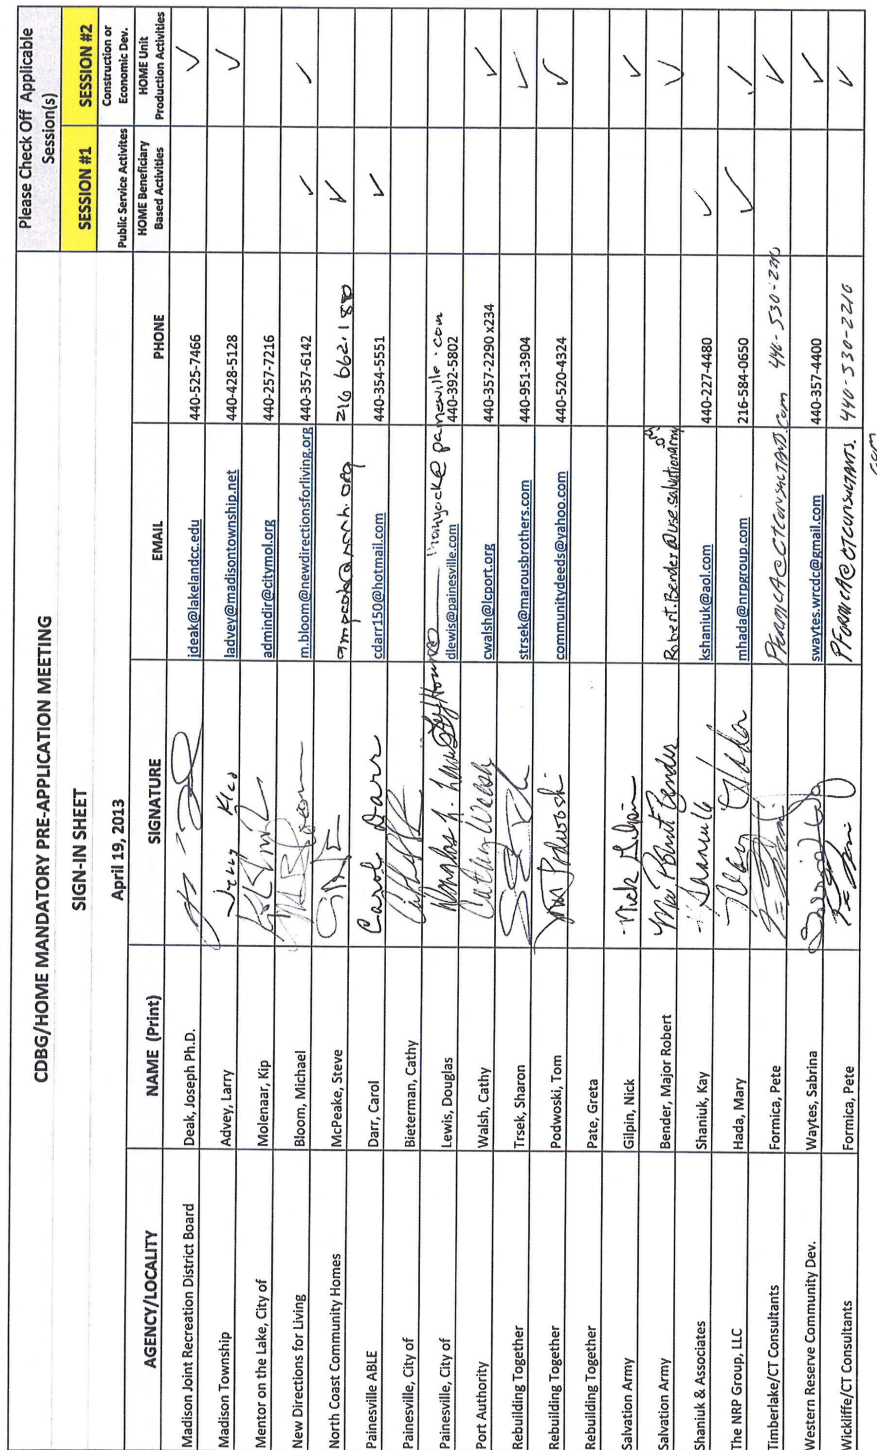 CDBG/HOME MANDATORY PRE-APPLICATION MEETING
SIGN-IN SHEET
April 19, 2013
Please Check Off Applicable
Session(s)
SESSION #1 SESSION #2
Public Service Activites Construction or
Economic Dev.
AGENCY/LOCALITY NAME (Print) SIGNATURE EMAIL PHONE HOME Beneficiary
Based Activities HOME Unit
Production Activities
Madison Joint Recreation District Board Deak, Joseph Ph.D. jdeak@lakelandcc.edu 440-525-7466 ✓
Madison Township Advey, Larry ladvey@madisontownship.net 440-428-5128 ✓
Mentor on the Lake, City of Molenaar, Kip admindir@citymol.org 440-257-7216
New Directions for Living Bloom, Michael m.bloom@newdirectionsforliving.org 440-357-6142 ✓ ✓
North Coast Community Homes McPeake, Steve 216 662.1880 ✓
Painesville ABLE Darr, Carol Carol Darr cdarr150@hotmail.com 440-354-5551 ✓
Painesville, City of Bieterman, Cathy
Painesville, City of Lewis, Douglas dlewis@painesville.com 440-392-5802
Port Authority Walsh, Cathy Cathy Walsh cwalsh@lcport.org 440-357-2290 x234 ✓
Rebuilding Together Trsek, Sharon strsek@marousbrothers.com 440-951-3904 ✓
Rebuilding Together Podwoski, Tom Podwoski communitydeeds@yahoo.com 440-520-4324 ✓
Rebuilding Together Pate, Greta
Salvation Army Gilpin, Nick Nick Gilpin ✓
Salvation Army Bender, Major Robert Maj Robert Bender Robert.Bender@use.salvationarmy.org ✓
Shaniuk & Associates Shaniuk, Kay Shaniuk kshaniuk@aol.com 440-227-4480 ✓
The NRP Group, LLC Hada, Mary Mary Hada mhada@nrpgroup.com 216-584-0650 ✓ ✓
Timberlake/CT Consultants Formica, Pete PFORMICA@CTCONSULTANTS.com 440-530-2210 ✓
Western Reserve Community Dev. Waytes, Sabrina swaytes.wrcdc@gmail.com 440-357-4400 ✓
Wickliffe/CT Consultants Formica, Pete PFORMICA@CTCONSULTANTS. 440-530-2210 ✓
com